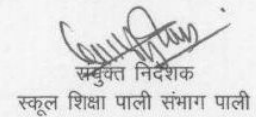 संयुक्त निदेशक
स्कूल शिक्षा पाली संभाग पाली